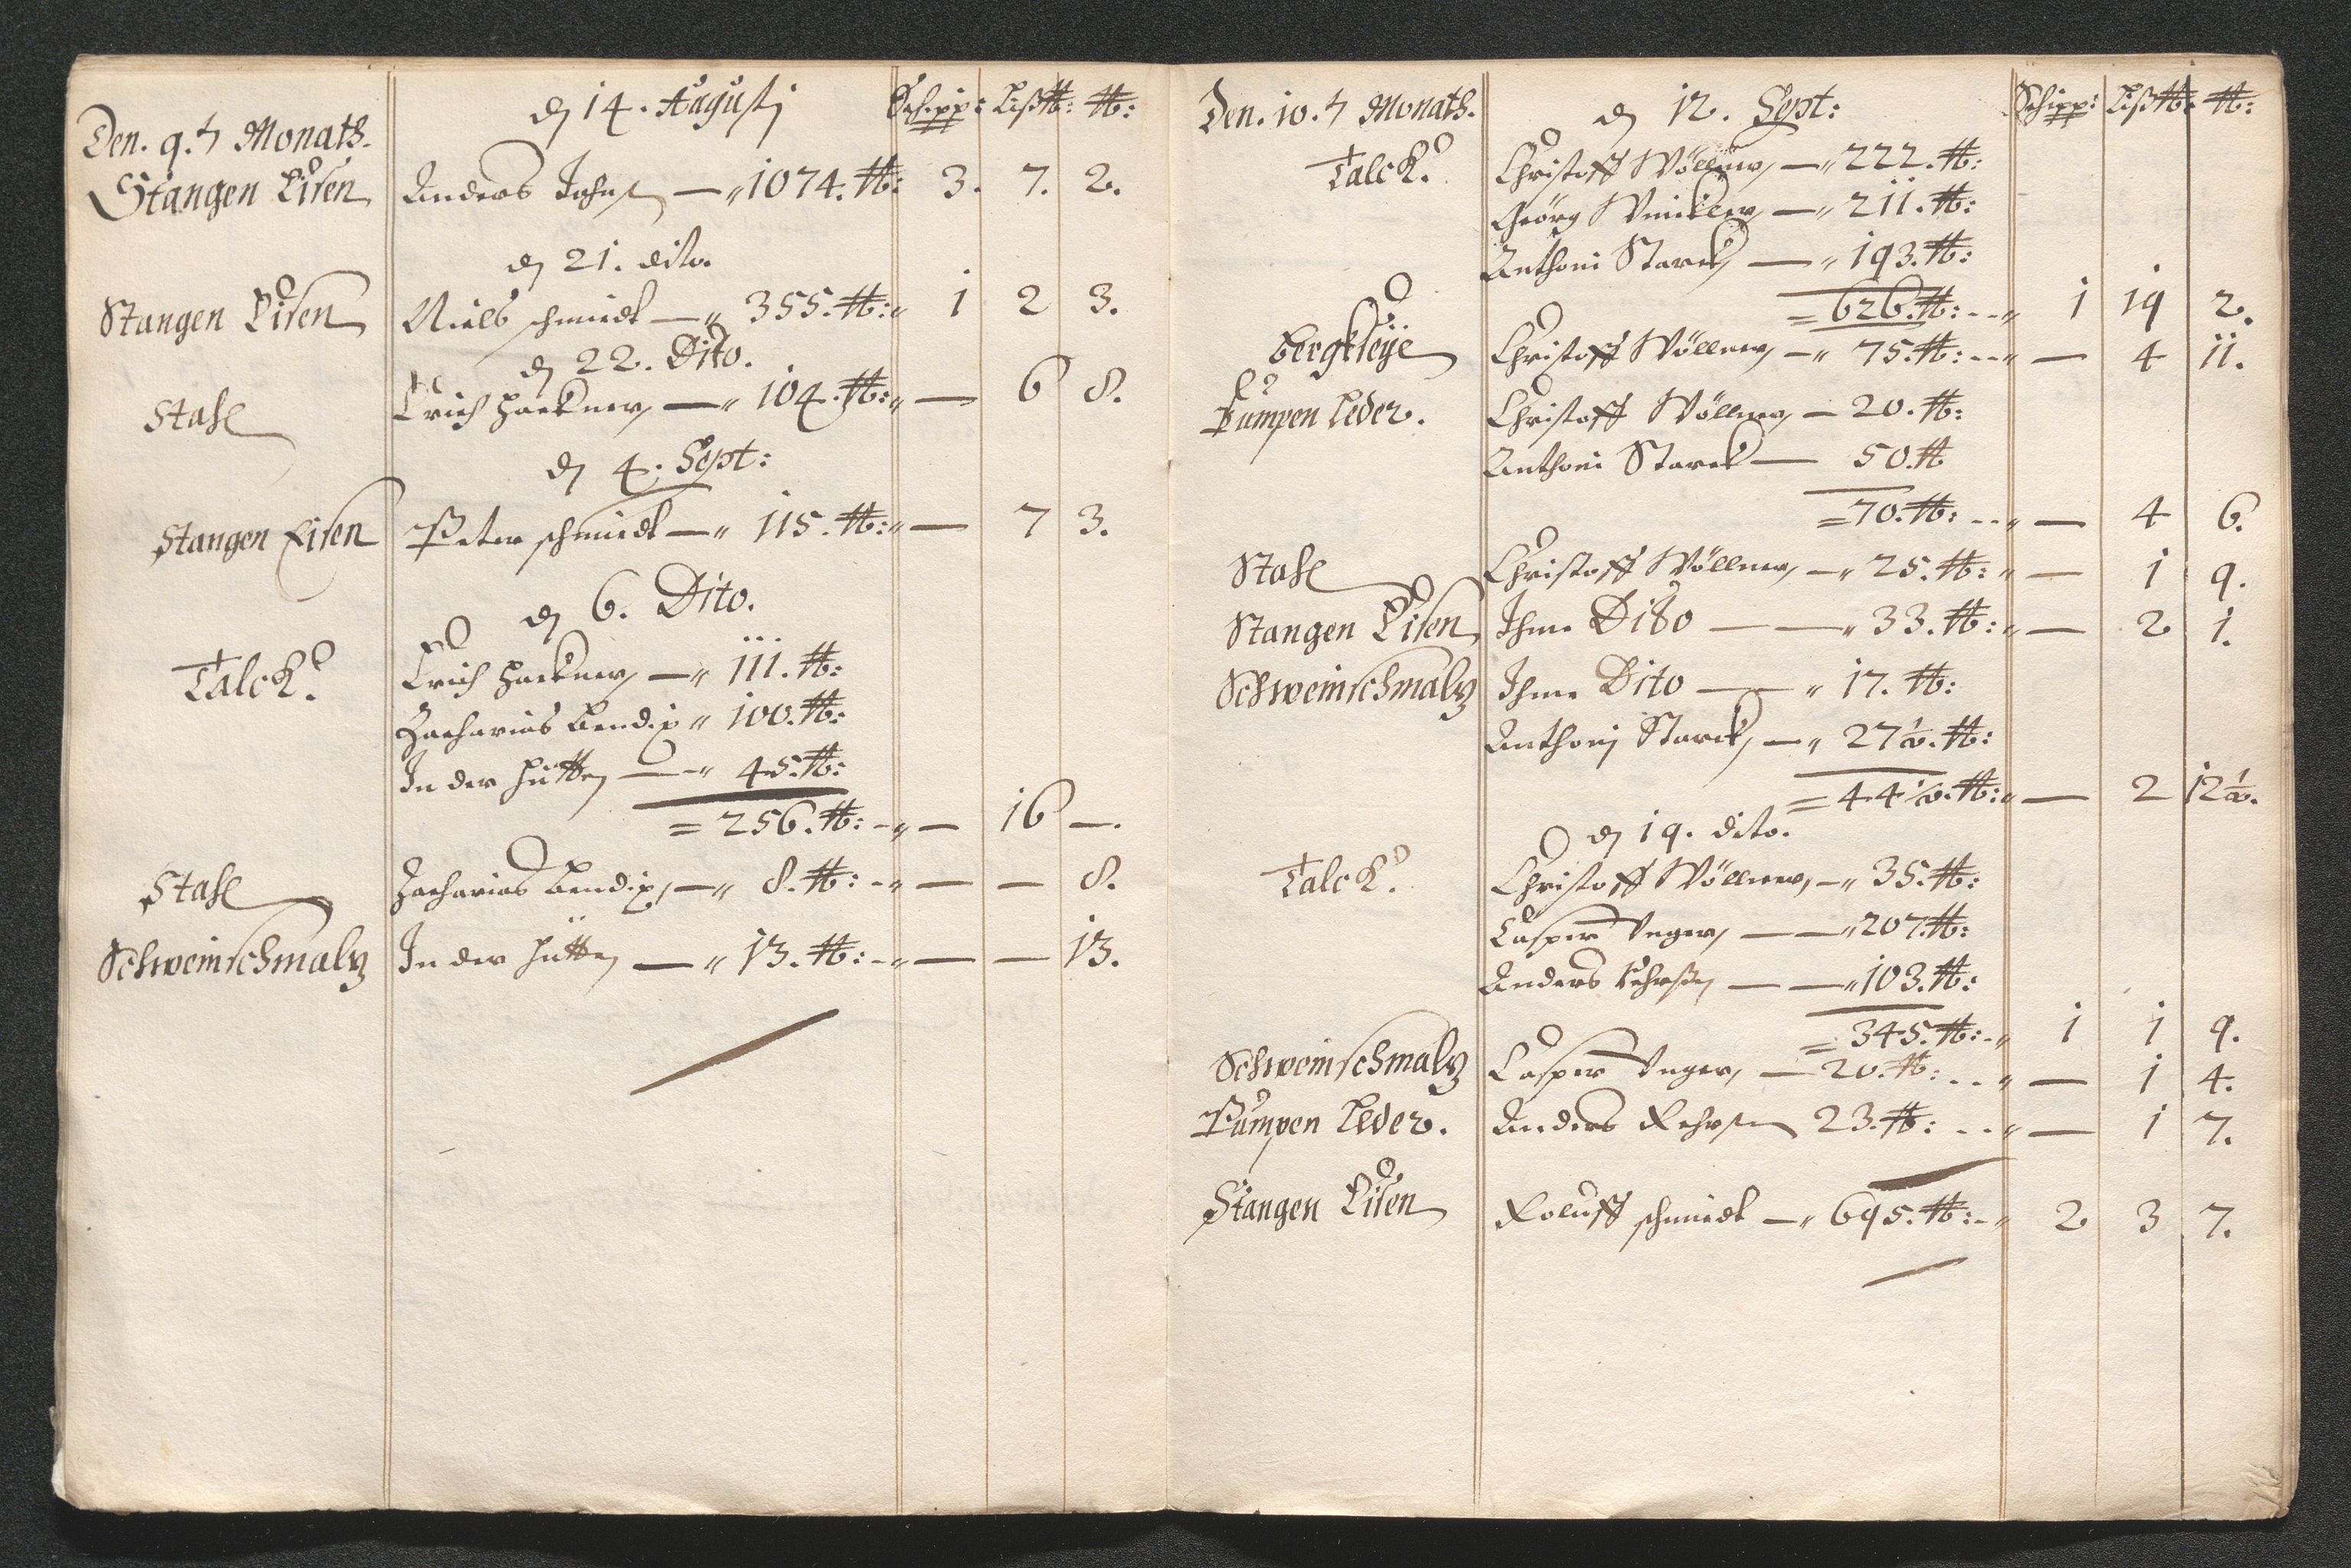 Den. 9.t Monats. d 14. Augustj Schipp: Liß℔: ℔:
Stangen Eisen Anders Johns — 1074. ℔: 3. 7. 2.
d 21. dito.
Stangen Eisen Niels schmiedt — 355. ℔: 1 2 3.
d 22. Dito.
Stahl Erich Hackner — 104. ℔: — 6 8.
d 4. Sept:
Stangen Eisen Peter schmiedt — 115. ℔: — 7 3.
d 6. Dito.
Talck. Erich Hackner — 111. ℔:
Zacharias Bendix 100. ℔:
In der Hütten — 45. ℔:
= 256. ℔: — 16 —.
Stahl Zacharias Bendix, — 8. ℔: — — 8.
Schweinschmalz In der Hütten — 13. ℔: — — 13.
Den. 10.t Monats. d 12. Sept: Schipp: Liß℔: ℔:
Talck. Christoff Wöllner — 222. ℔:
Geörg Winckler — 211. ℔:
Anthoni Starck — 193. ℔:
= 626. ℔: 1 19 2.
Bergkleije Christoff Wöllner — 75. ℔: — 4 11.
Pumpen Leder. Christoff Wöllner — 20. ℔:
Anthoni Starck — 50. ℔
= 70. ℔: — 4 6.
Stahl Christoff Wöllner — 25. ℔: — 1 9.
Stangen Eisen Ihme Dito — 33. ℔: — 2 1.
Schweinschmalz Ihme Dito — 17. ℔:
Anthonj Starck — 27 1/2. ℔:
= 44 1/2. ℔: — 2 12 1/2.
d 19. dito.
Talck. Christoff Wöllner, — 35. ℔:
Casper Unger — 207. ℔:
Anders — 103. ℔:
= 345. ℔: 1 1 9.
Schweinschmalz Casper Unger — 20. ℔: — 1 4.
Pumpen Leder. Anders 23. ℔: — 1 7.
Stangen Eisen Roluff schmiedt — 695. ℔: 2 3 7.